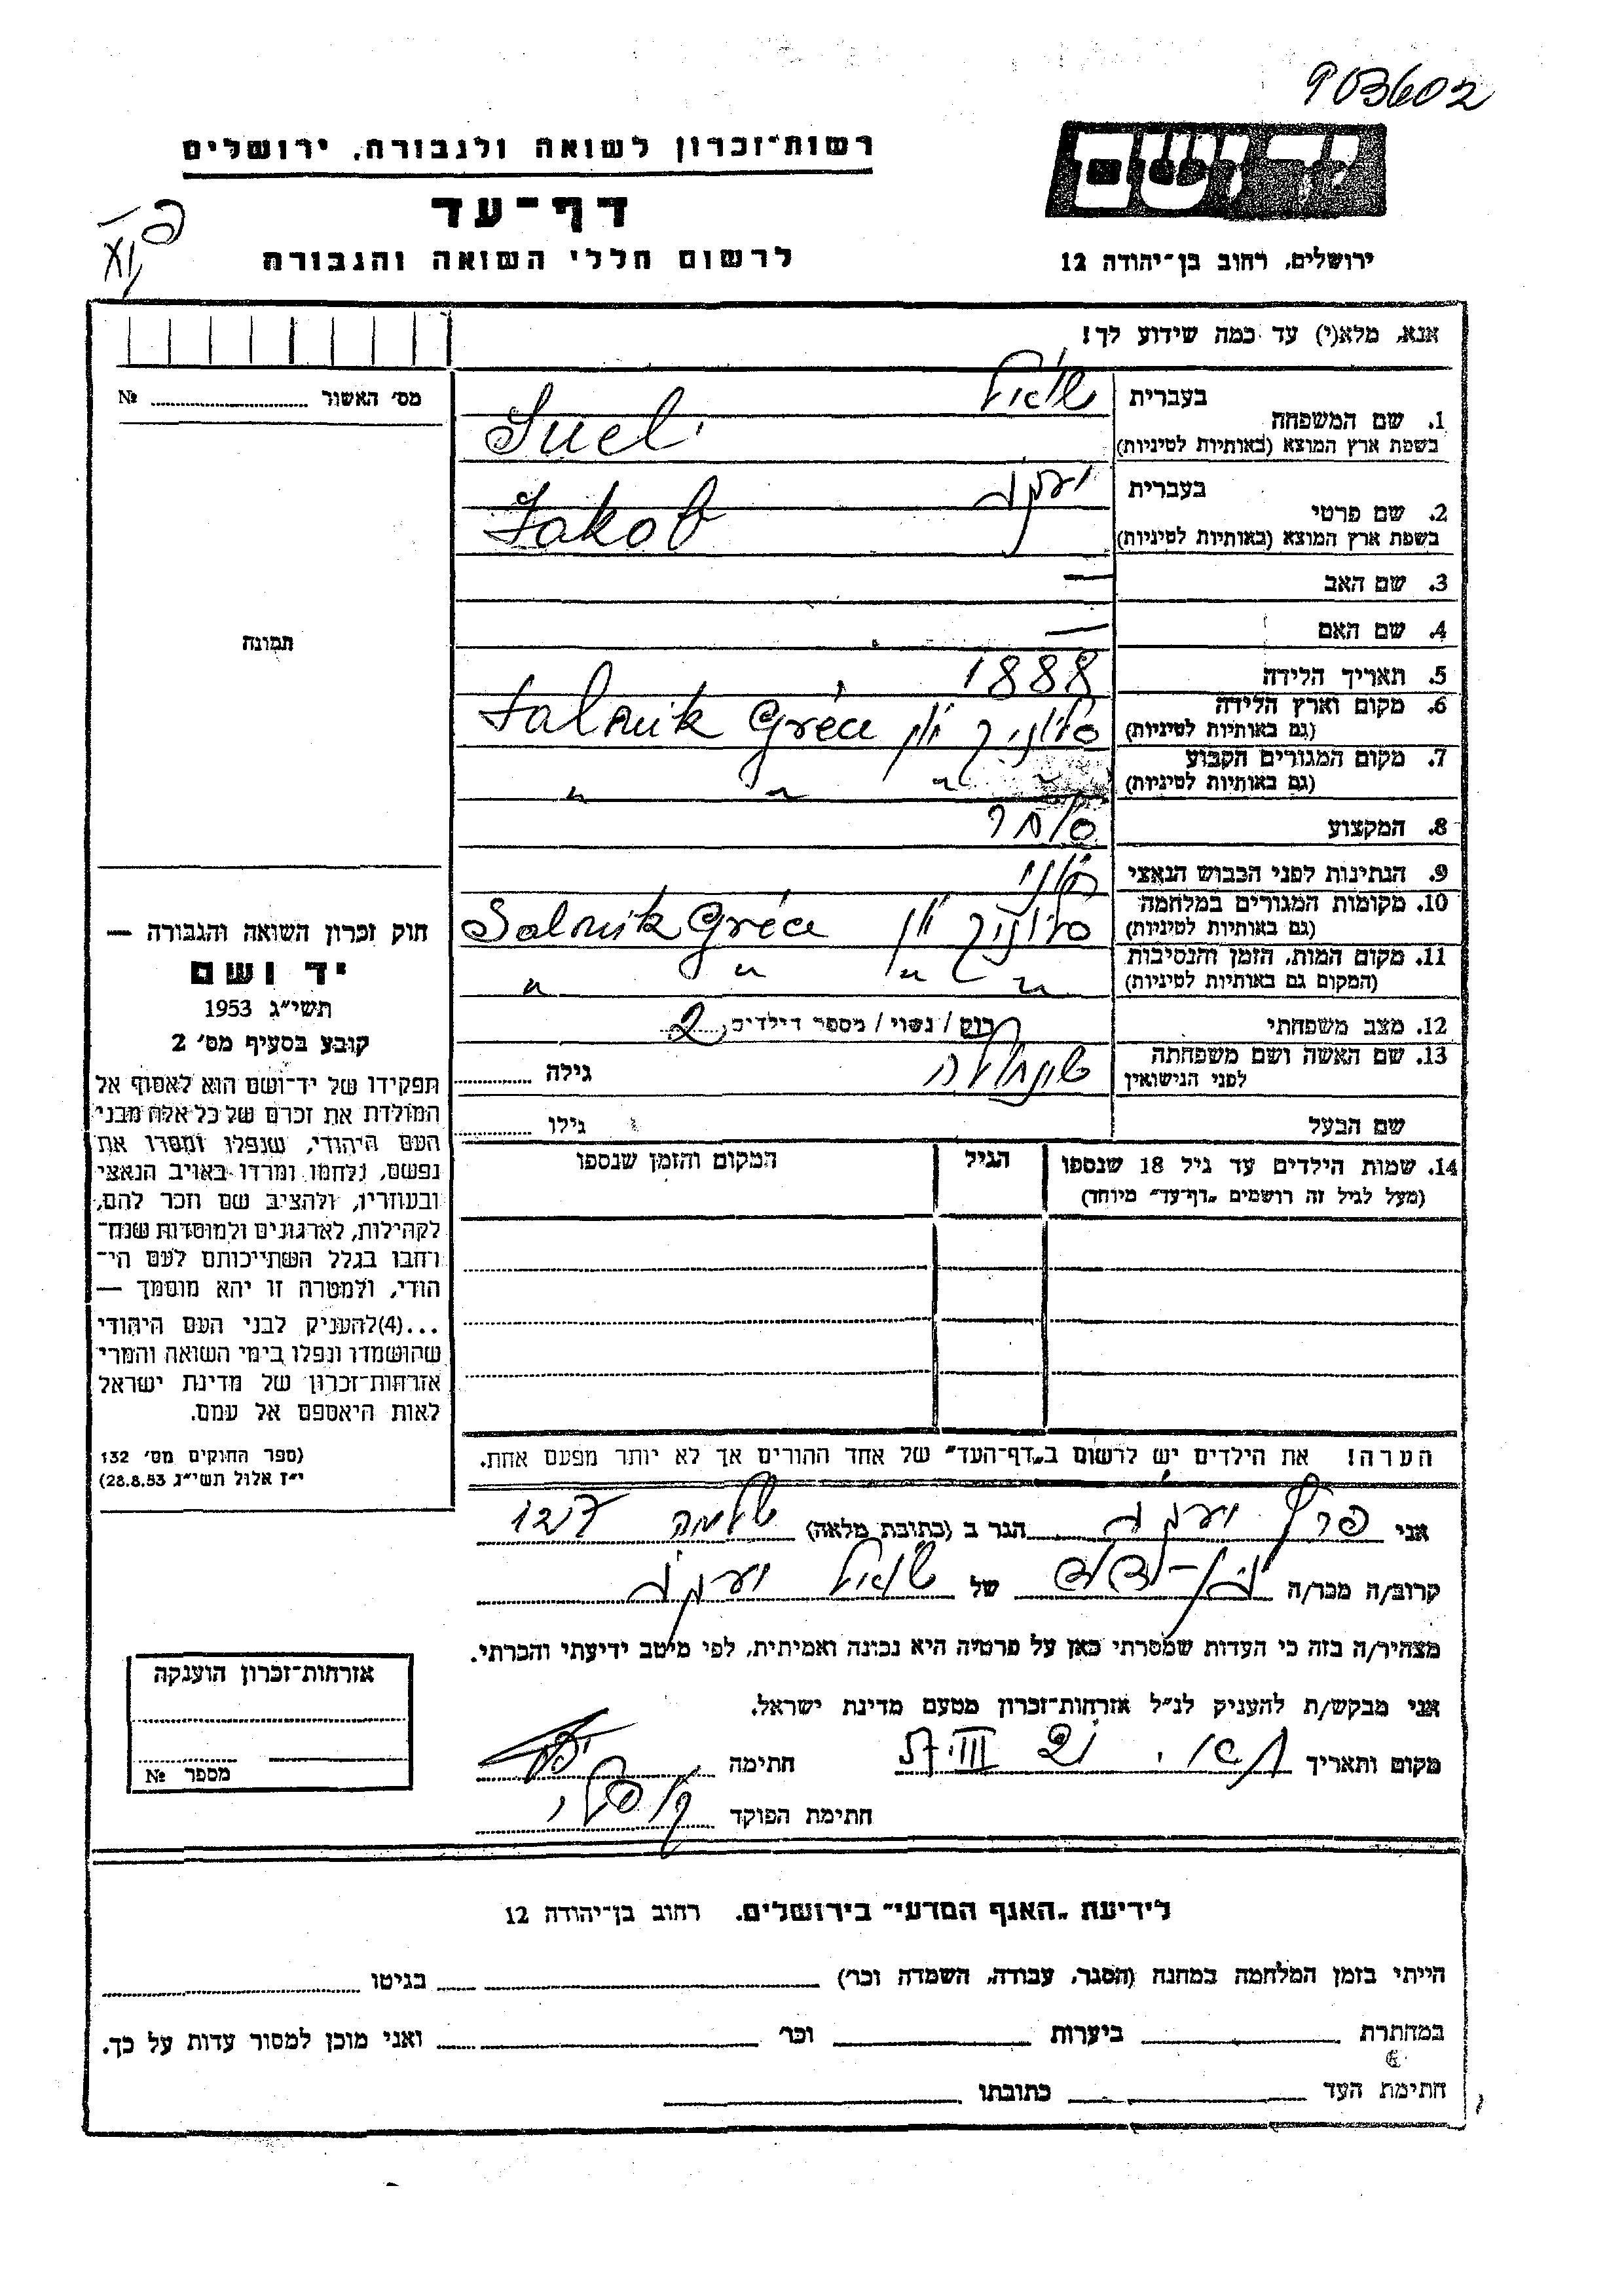 903602
רשות־זכרון לשואה ולגבורה, ירושלים
יד ושם
דף־עד
לרשום חללי השואה והגבורה
ירושלים, רחוב בן־יהודה 12
אנא, מלא(י) עד כמה שידוע לך!
מס׳ האשור № 
בעברית
1. שם המשפחה
בשפת ארץ המוצא (באותיות לטיניות) Suel
בעברית יעקב
2. שם פרטי
בשפת ארץ המוצא (באותיות לטיניות) Jakob
3. שם האב —
4. שם האם —
תמונה
5. תאריך הלידה 1888
6. מקום וארץ הלידה
(גם באותיות לטיניות) סלוניק יון Salonik Gréce
7. מקום המגורים הקבוע
(גם באותיות לטיניות) " " " "
8. המקצוע סוחר
9. הנתינות לפני הכבוש הנאצי יוני
10. מקומות המגורים במלחמה
(גם באותיות לטיניות) סלוניק יון Salonik Gréce
11. מקום המות, הזמן והנסיבות
(המקום גם באותיות לטיניות) " " " "
12. מצב משפחתי רוק / נשוי / מספר הילדים 2
13. שם האשה ושם משפחתה
לפני הנישואין גילה
שם הבעל גילו
14. שמות הילדים עד גיל 18 שנספו הגיל המקום והזמן שנספו
(מעל לגיל זה רושמים „דף־עד״ מיוחד)
חוק זכרון השואה והגבורה —
יד ושם
תשי״ג 1953
קובע בסעיף מס׳ 2
תפקידו של יד־ושם הוא לאסוף אל
המולדת את זכרם של כל אלה מבני
העם היהודי, שנפלו ומסרו את
נפשם, נלחמו ומרדו באויב הנאצי
ובעוזריו, ולהציב שם וזכר להם,
לקהילות, לארגונים ולמוסדות שנח־
רחבו בגלל השתייכותם לעם הי־
הודי, ולמטרה זו יהא מוסמך —
...(4)להעניק לבני העם היהודי
שהושמדו ונפלו בימי השואה והמרי
אזרחות־זכרון של מדינת ישראל
לאות היאספם אל עמם.
(ספר החוקים מס׳ 132
י״ז אלול תשי״ג 28.8.53)
הערה! את הילדים יש לרשום ב„דף־העד״ של אחד ההורים אך לא יותר מפעם אחת.
אני פרץ יעקב הגר ב (כתובת מלאה)
קרוב/ה מכר/ה של שואל יעקב
מצהיר/ה בזה כי העדות שמסרתי כאן על פרטיה היא נכונה ואמיתית, לפי מיטב ידיעתי והכרתי.
אני מבקש/ת להעניק לנ״ל אזרחות־זכרון מטעם מדינת ישראל.
מקום ותאריך חתימה
חתימת הפוקד
אזרחות־זכרון הוענקה
מספר №
לידיעת „האגף המדעי״ בירושלים. רחוב בן־יהודה 12
הייתי בזמן המלחמה במחנה (הסגר, עבודה, השמדה וכר׳) בגיטו
במחתרת ביערות וכר׳ ואני מוכן למסור עדות על כך.
חתימת העד כתובתו